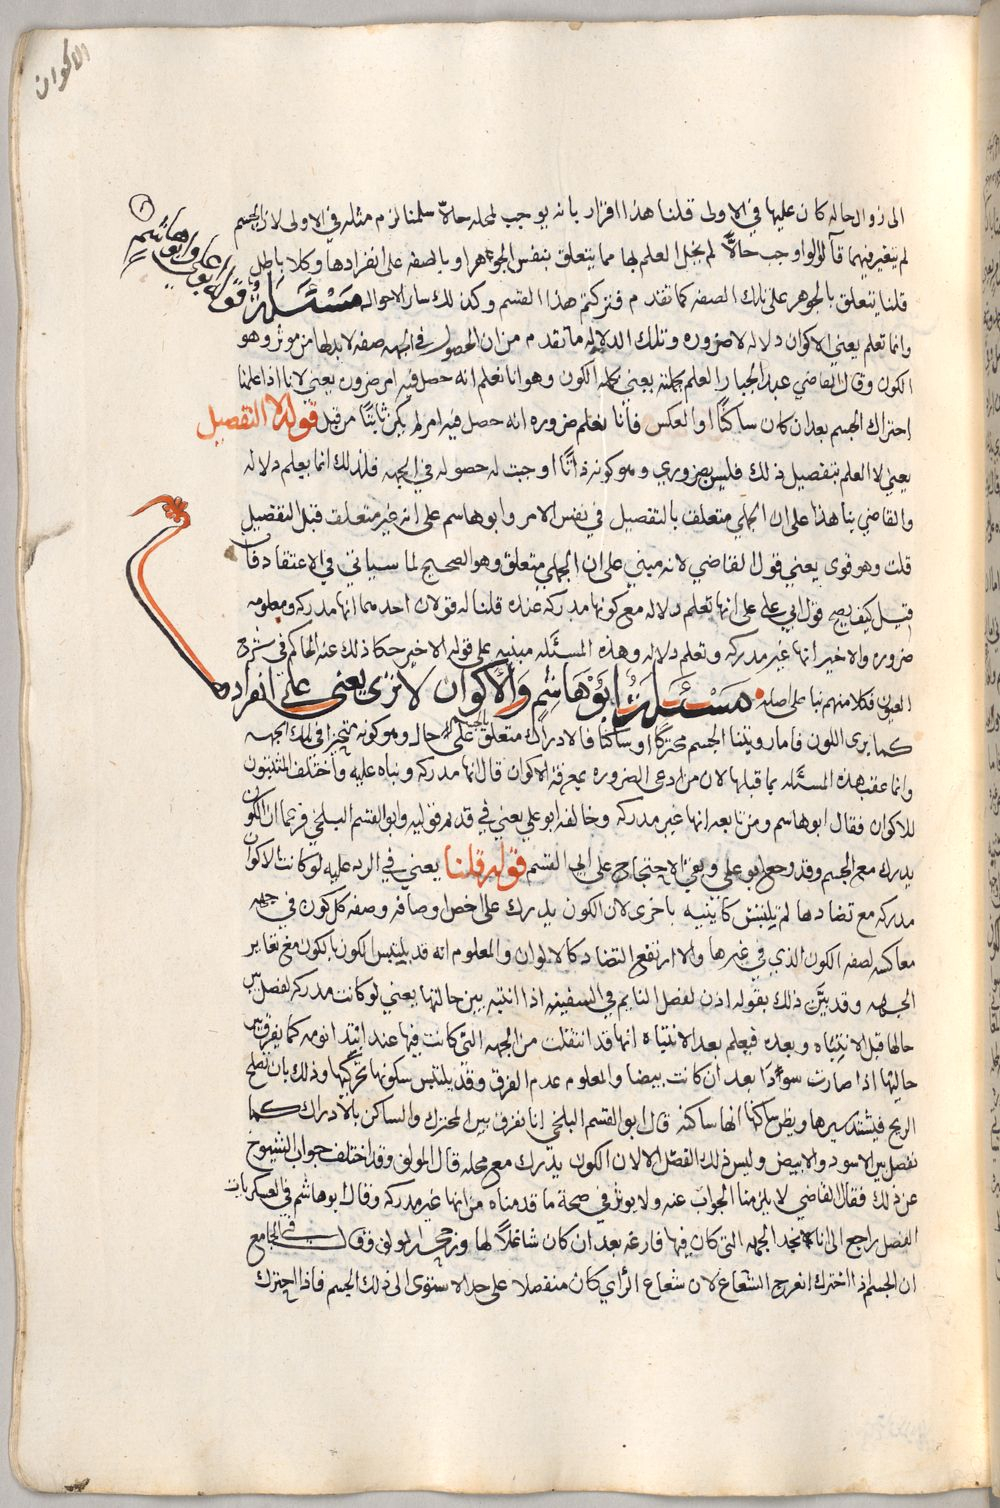 الاكوان
الى زوال حاله كان عليها في الاولى قلنا هذا اقرار بانه يوجب لمحله حالاً سلمنا لزم مثله في الاولى لان الجسم
لم يتغير فيهما قالوا لو اوجب حالاً لم يخل العلم بها مما يتعلق بنفس الجوهر او بالصفه على انفرادها وكلا باطل
قلنا يتعلق بالجوهر على تلك الصفه كما تقدم فتركتم هذا القسم وكذلك سائر الاحوال مسئلة قوله ابو علي وابو هاشم
وانما تعلم يعني الاكوان دلالة لا ضروره وتلك الدلاله ما تقدم من ان الحصول في الجهه صفه لا بد لها من موثر وهو
الكون وقال القاضي عبد الجبار العلم بجملته يعني بجملة الكون وهو انا نعلم انه حصل فيه امر ضروره يعني لانا اذا علمنا
احتراك الجسم بعد ان كان ساكنًا او العكس فانا نعلم ضروره انه حصل فيه امر لم يكن ثابتًا من قبل قوله لا التفصيل
يعني لا العلم بتفصيل ذلك فليس بضروري وهو كونه ذاتًا اوجبت له حصوله في الجهه فلذلك انما يعلم دلاله
والقاضي بنا هذا على ان الجملي متعلق بالتفصيل في نفس الامر وابو هاشم على انه غير متعلق قبل التفصيل
قلت وهو قوي يعني قول القاضي لانه مبني على ان الجملي متعلق وهو الصحيح لما سياتي في الاعتقاد فان
قيل كيف يصح قول ابي علي على انها تعلم دلاله مع كونها مدركه عنده قلنا له قولان احدهما انها مدركه ومعلومه
ضروره والاخير انها غير مدركه وتعلم دلاله وهذه المسئله مبنيه على قوله الاخير حكا ذلك عنه الحاكم في شرح
العيون فكلامنهم بنا على اصله مسئلة ابو هاشم والاكوان لا ترى يعني على انفراده
كما يرى اللون فاما رويتنا الجسم محتركًا او ساكنًا فالادراك متعلق بالجسم على حال وهو كونه متحيزا في تلك الجهه
وانما عقب هذه المسئله بما قبلها لان من ادعى الضروره بمعرفة الاكوان قال انها مدركه وبناه عليه واختلف المثبتون
للاكوان فقال ابو هاشم ومن تابعه انها غير مدركه وخالفه ابو علي يعني في قديم قوليه وابو القسم البلخي فزعما ان الكون
يدرك مع الجسم وقد رجع ابو علي وبقي الاحتجاج على ابي القسم قوله قلنا يعني في الرد عليه لو كانت الاكوان
مدركه مع تضادها لم يلتبس كائنيه باخرى لان الكون يدرك على اخص اوصافه وصفه كل كون في جهه
معاكسه لصفه الكون الذي في غيرها والا ارتفع التضاد كالالوان والمعلوم انه قد يلتبس الكون بالكون مع تغاير
الجهه وقد بيَّن ذلك بقوله اذن لفصل النايم في السفينه اذا انتبه بين حالتها يعني لو كانت مدركه لفصل بين
حالها قبل الانتباه وبعده فيعلم بعد الانتباه انها قد انتقلت من الجهه التي كانت فيها عند ابتدا نومه كما يفرق بين
حاليها اذا صارت سودا بعد ان كانت بيضا والمعلوم عدم الفرق وقد يلتبس سكونها بتحركها وذلك بان تصلح
الريح فيشتد سيرها ويظن ساكنها انها ساكنه قال ابو القسم البلخي انا نفرق بين المحترك والساكن بالادراك كما
نفصل بين الاسود والابيض وليس ذلك الفصل الا لان الكون يدرك مع محله قال المولف وقد اختلف جواب الشيوخ
عن ذلك فقال القاضي لا يلزمنا الجواب عنه ولا يوثر في صحة ما قدمناه من انها غير مدركه وقال ابو هاشم في العسكريات
الفصل راجع الى انا نجد الجهه التي كان فيها فارغه بعد ان كان شاغلاً لها المولف في الجامع
ان الجسم اذا احترك انعرج الشعاع لان شعاع الرائي كان منفصلا على حد الاستوى الى ذلك الجسم فاذا احترك